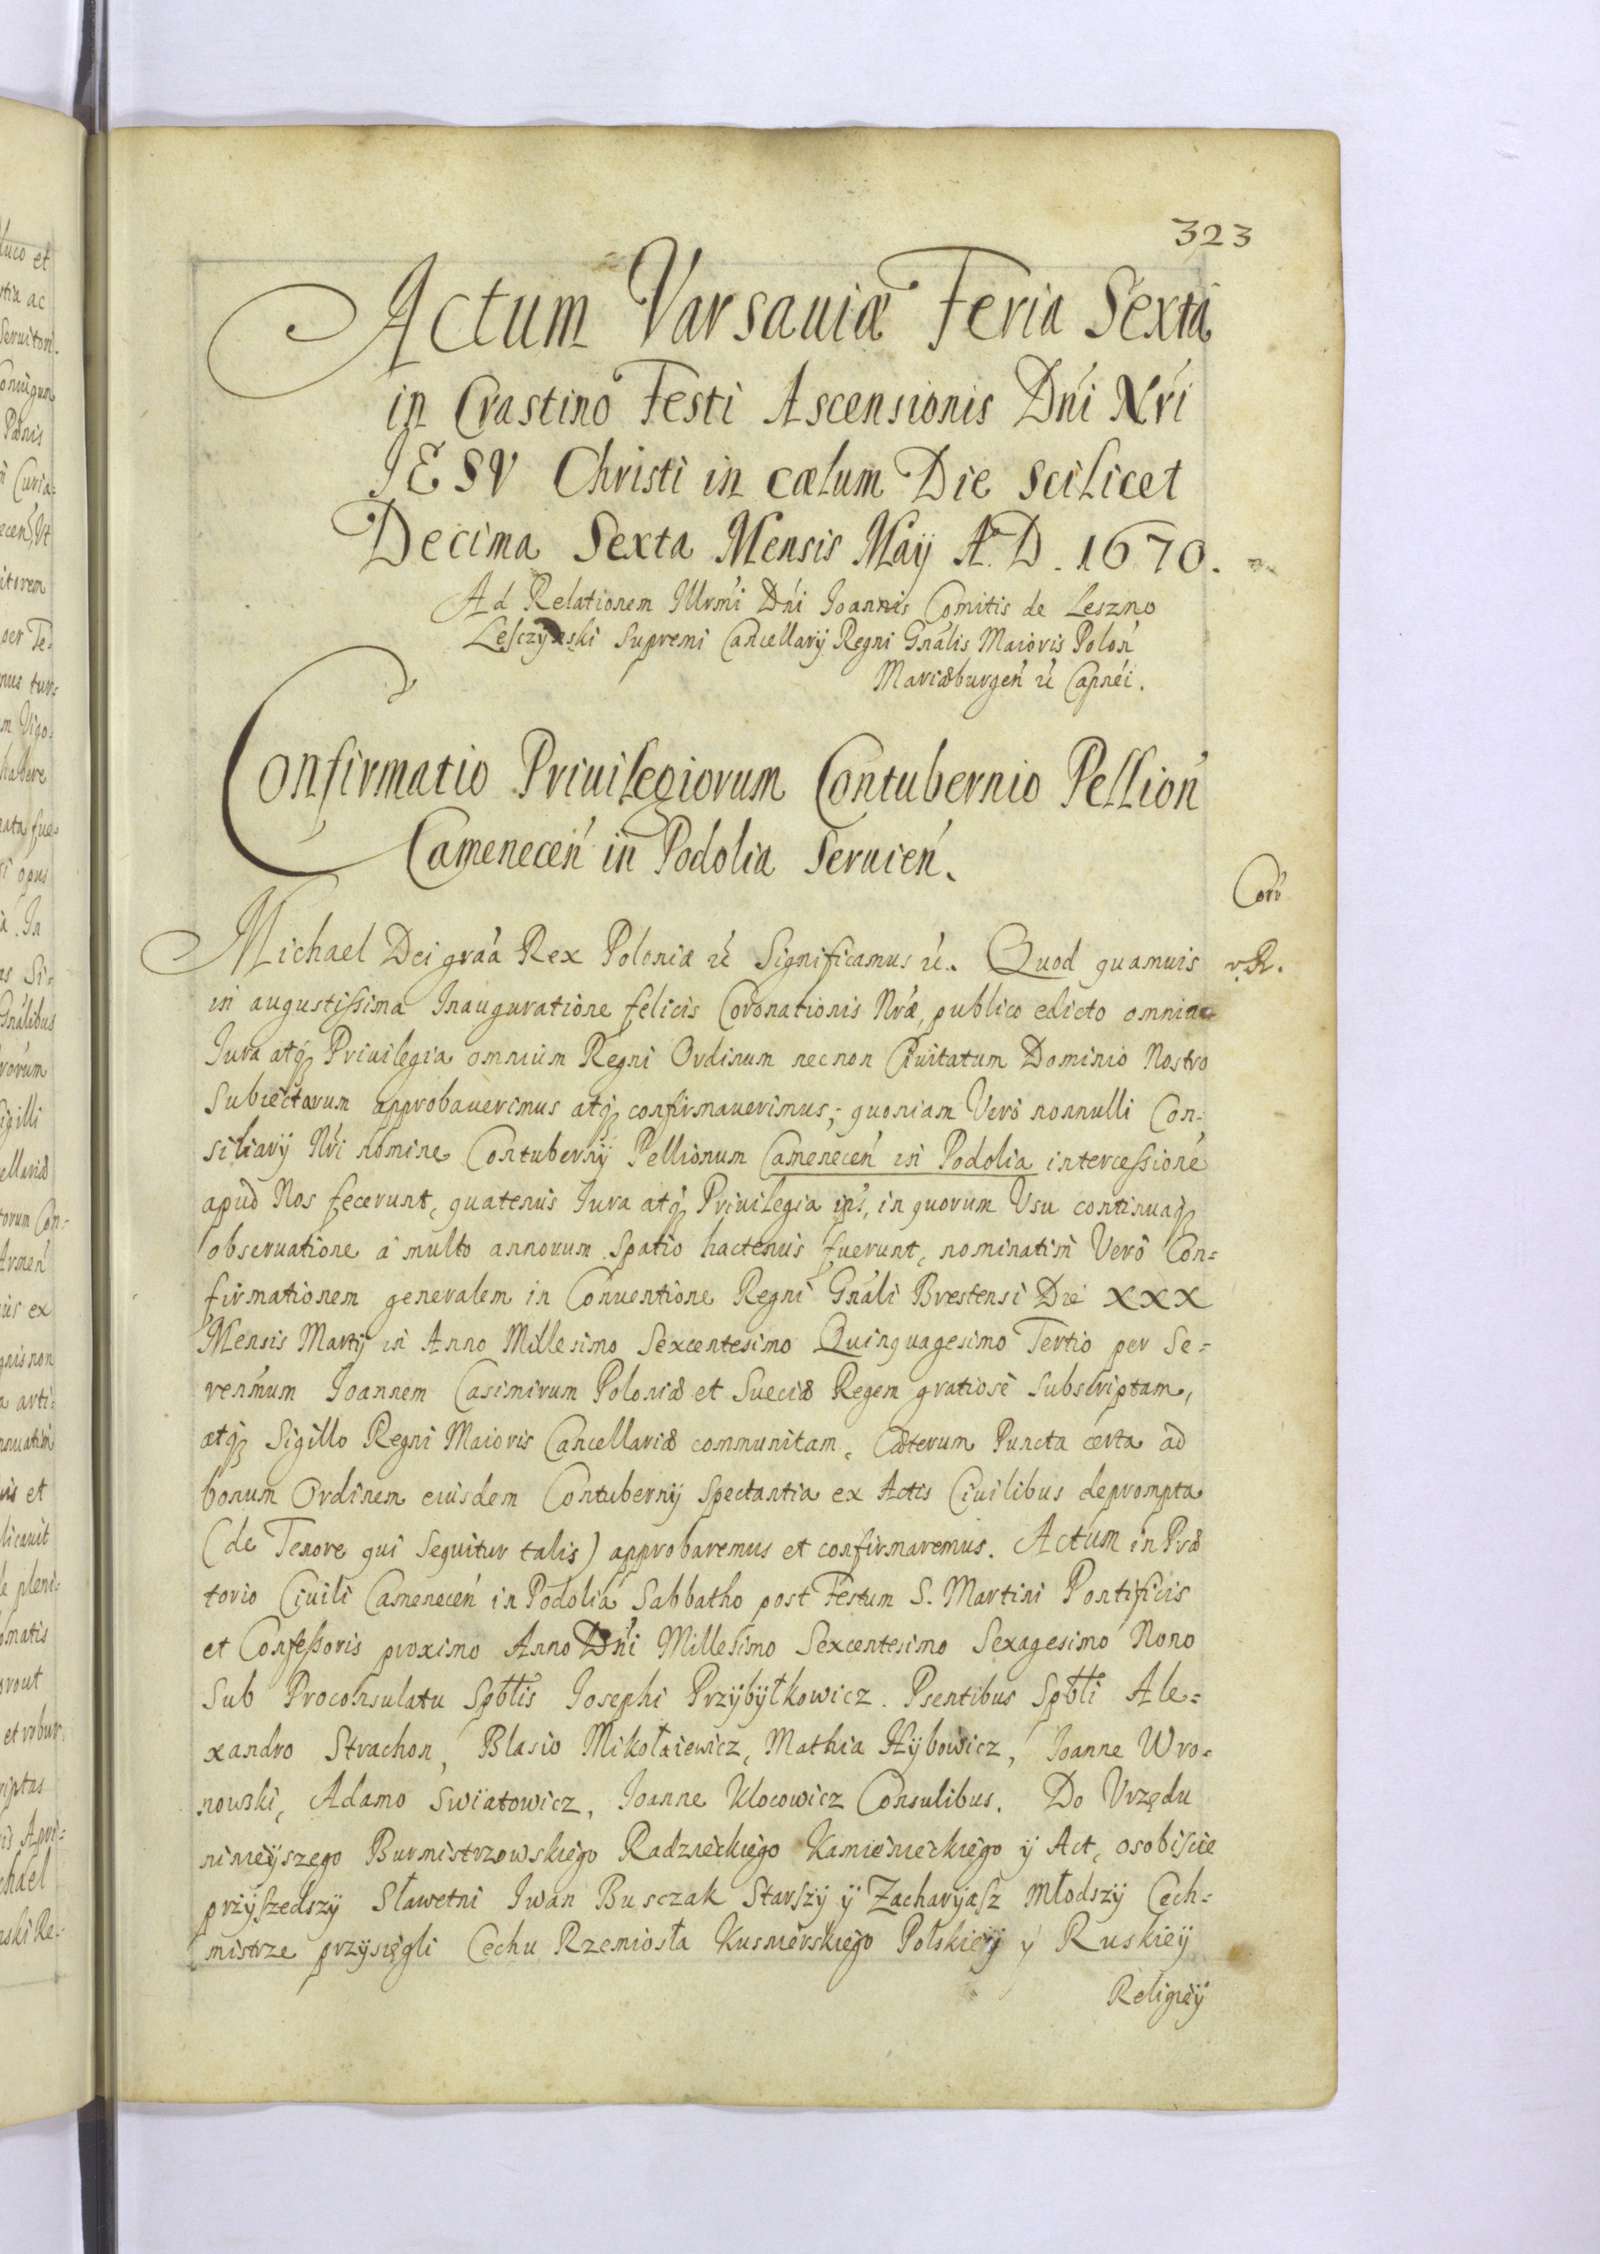 323
Actum Varsauiæ Feria Sexta
in Crastino Festi Ascensionis Dńi Nŕi
IESV Christi in cælum Die scilicet
Decima Sexta Mensis Maÿ A.D. 1670.
Ad Relationem Illrmi Dńi Joannis Comitis de Leszno
Lesczynski Supremi Cancellarÿ Regni Gnális Maioris Poloń
Mariæburgeń Capnéi.
Confirmatio Priuilegiorum Contubernio Pellioń
Cameneceń in Podolia Seruień.
Michael Dei graá Rex Poloniæ Significamus Quod quamuis
in augustissima Inauguratione felicis Coronationis Nræ, publico edicto omnia
Iura atq Priuilegia omnium Regni Ordinum necnon Ciuitatum Dominio Nostro
Subiectorum approbauerimus atq confirmauerimus; quoniam Vero nonnulli Con-
siliarÿ Nŕi nomine Contubernÿ Pellionum Cameneceń in Podolia intercessione
apud Nos fecerunt, quatenus Iura atq Priuilegia in quorum Vsu continuaq
obseruatione a multo annorum spatio hactenus fuerunt, nominatim Vero Con=
firmationem generalem in Conuentione Regni Gnáli Brestensi Die XXX
Mensis Martÿ in Anno Millesimo Sexcentesimo Quinquagesimo Tertio per Se=
renm̃um Joannem Casimirum Poloniæ et Sueciæ Regem gratiose subscriptam,
atq Sigillo Regni Maioris Cancellariæ communitam, Cæterum Puncta certa ad
bonum Ordinem eiusdem Contubernÿ Spectantia ex Actis Ciuilibus deprompta
(de Tenore qui sequitur talis) approbaremus et confirmaremus. Actum in Præ
torio Ciuili Cameneceń in Podolia Sabbatho post Festum S. Martini Pontificis
et Confessoris proximo Anno Dńi Millesimo Sexcentesimo Sexagesimo Nono
Sub Proconsulatu Spbtlis Josephi Przÿbÿłkowicz. Psentibus Spbtli Ale=
xandro Strachon, Blasio Mikołaiewicz, Mathia Hÿbowicz, Joanne Wro-
nowski, Adamo Swiatowicz, Joanne Klocowicz Consulibus. Do Vrzędu
ninieÿszego Burmistrzowskiego Radzieckiego Kamienieckiego ÿ Act, osobiscie
przÿszedszÿ Sławetni Iwan Busczak Starszÿ ÿ Zacharÿasz Młodszÿ Cech=
mistrze przÿsięgli Cechu Rzemiosła Kusnierskiego Polskieÿ ÿ Ruskieÿ
Religieÿ